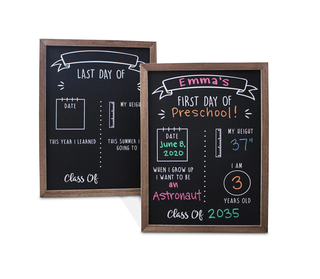 LAST DAY OF
DATE
MY HEIGHT
THIS YEAR I LEARNED
THIS SUMMER I
GOING TO
Class Of:
Emma's
FIRST DAY OF
Preschool!
DATE
June 8,
2020
MY HEIGHT
37"
WHEN I GROW UP
I WANT TO BE
an
Astronaut
I AM
3
YEARS OLD
Class Of: 2035